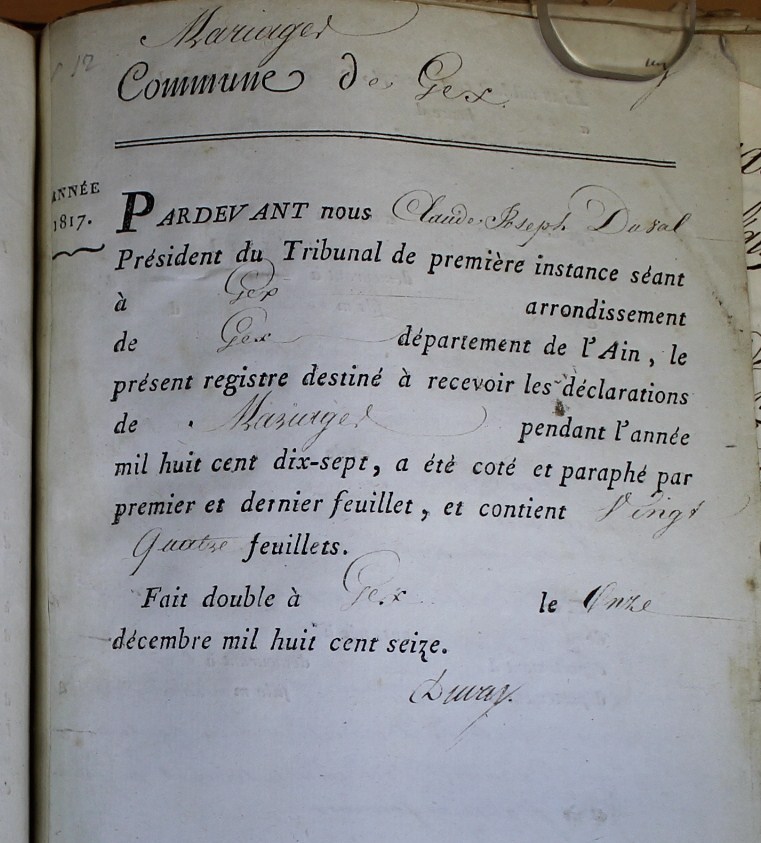 Mariages
Commune de Gex
ANNÉE
1817.
PARDEVANT nous Claude Joseph Duval
Président du Tribunal de première instance séant
à Gex arrondissement
de Gex département de l'Ain, le
présent registre destiné à recevoir les déclarations
de Mariages pendant l'année
mil huit cent dix-sept, a été coté et paraphé par
premier et dernier feuillet, et contient Vingt
Quatre feuillets.
Fait double à Gex le Onze
décembre mil huit cent seize.
Duval